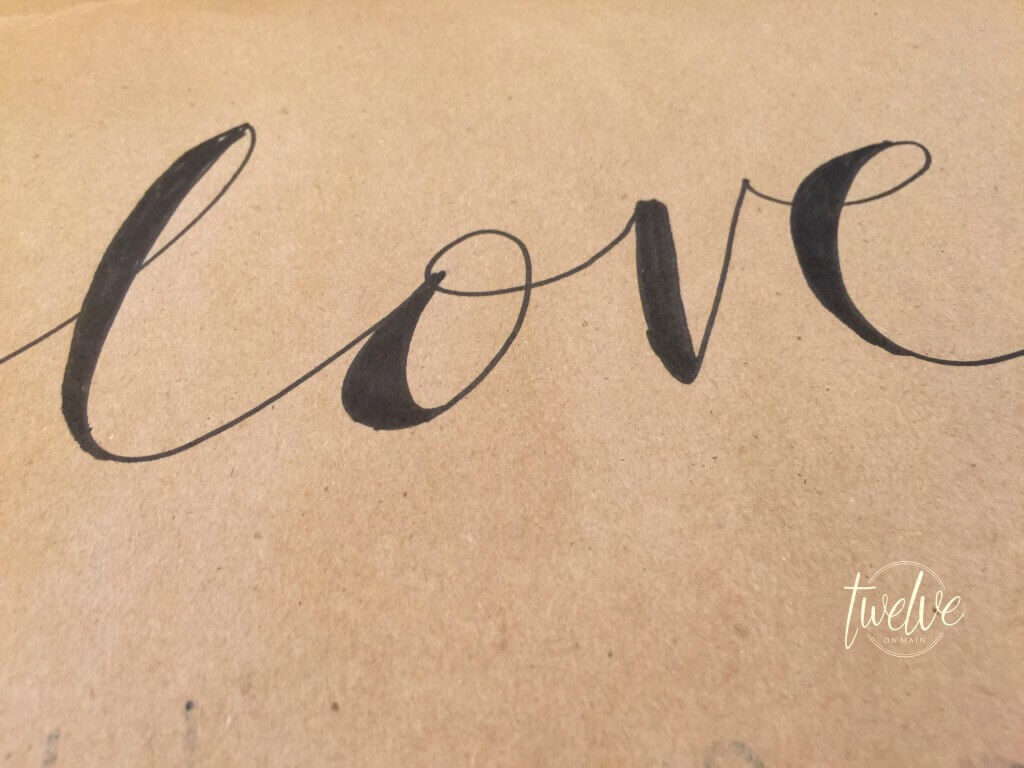 love
twelve
ON MAIN